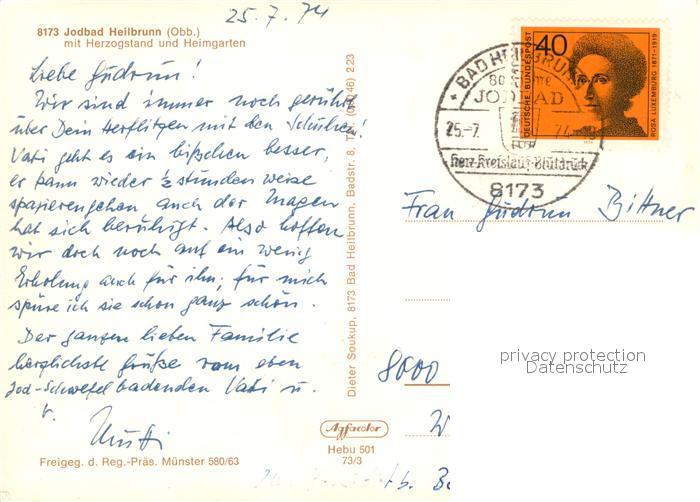 25.7.74
8173 Jodbad Heilbrunn (Obb.)
mit Herzogstand und Heimgarten
Liebe Gudrun!
Wir sind immer noch gerührt
über Dein Herflitzen mit den Schuhen!
Vati geht es ein bißchen besser,
er kann wieder ½ stunden weise
spazierengehen auch der Magen
hat sich beruhigt. Also hoffen
wir doch noch auf ein wenig
Erholung auch für ihn; für mich
spüre ich sie schon ganz schön.
Der ganzen lieben Familie
herzlichste Grüße vom eben
Jod-Schwefel badenden Vati u.
v. Mutti
Freigeg. d. Reg.-Präs. Münster 580/63
Dieter Soukup, 8173 Bad Heilbrunn, Badstr. 8, Tel. (08046) 2 23
Agfacolor
Hebu 501
73/3
40
DEUTSCHE BUNDESPOST
ROSA LUXEMBURG 1871-1919
BAD HEILBRUNN
JODBAD
25.-7. 74
Herz-Kreislauf-Blutdruck
8173
Frau Gudrun Bittner
8000
W
privacy protection
Datenschutz